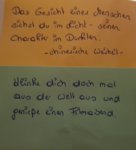 Das Gesicht eines Menschen
siehst du im Licht - seinen
Charakter im Dunklen.
- chinesische Weisheit -
klinke dich doch mal
aus der Welt aus und
genieße einen Filmabend.